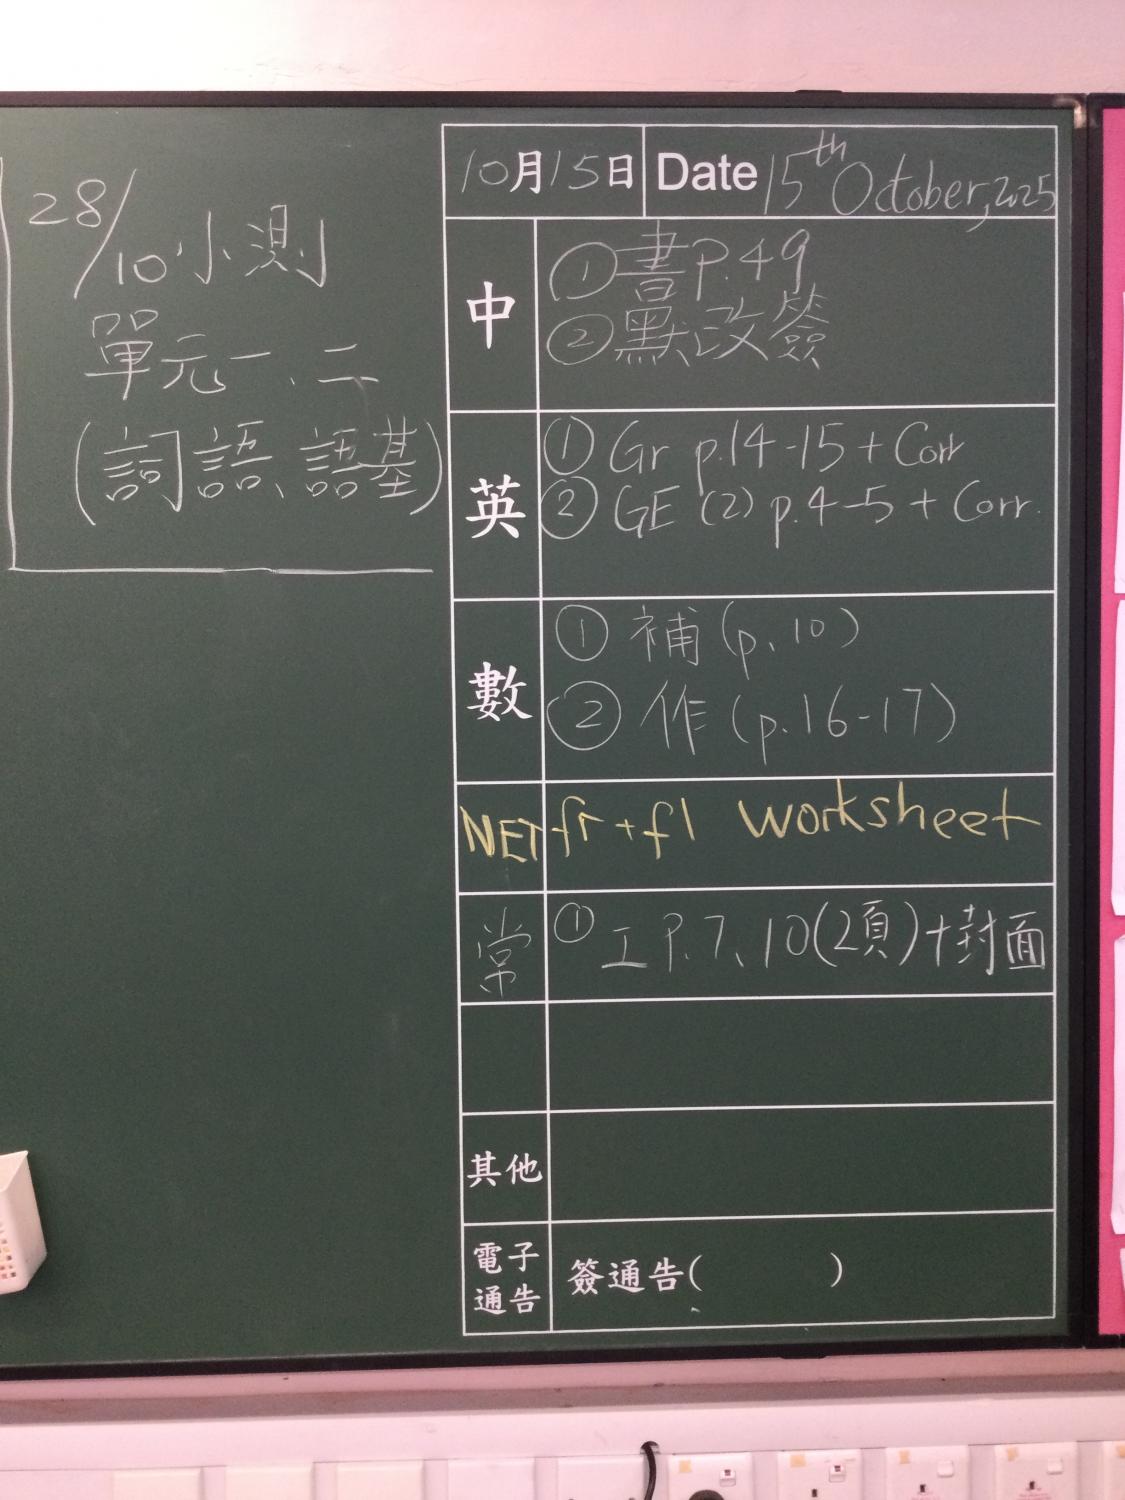 28/10 小測
單元一、二
(詞語、語基)
10月15日 Date 15th October, 2025
中 ① 書 P.49
② 默改簽
英 ① Gr p.14-15 + Corr
② GE (2) p.4-5 + Corr.
數 ① 補 (p.10)
② 作 (p.16-17)
NET fr + fl worksheet
常 ① 工 P.7、10(2頁)+封面
其他
電子通告 簽通告( )